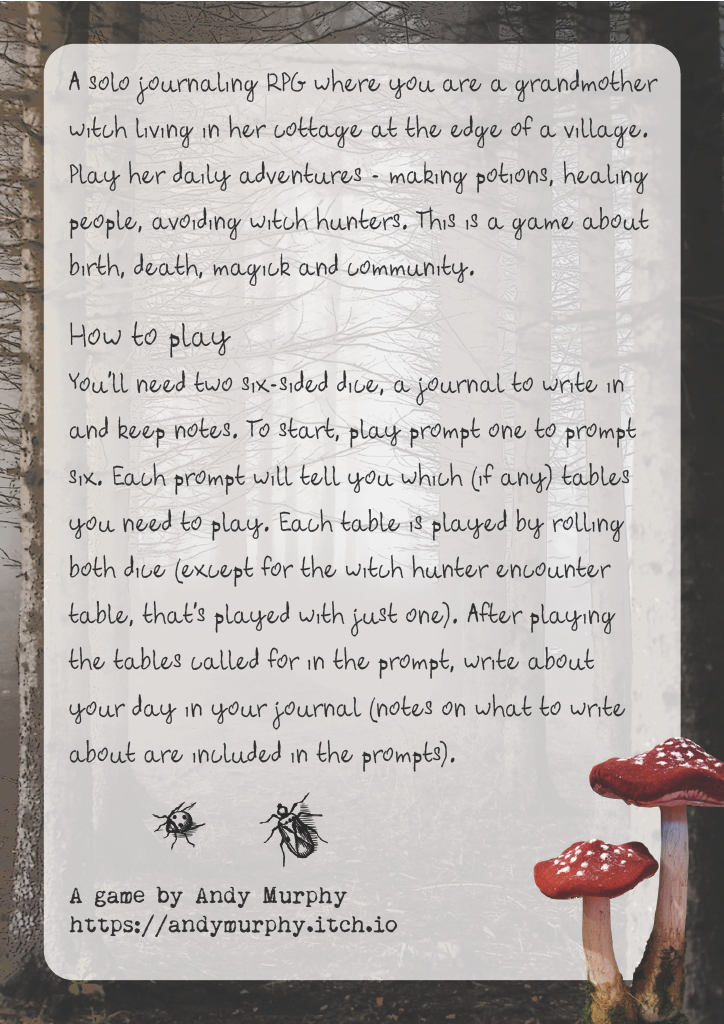 A solo journaling RPG where you are a grandmother
witch living in her cottage at the edge of a village.
Play her daily adventures - making potions, healing
people, avoiding witch hunters. This is a game about
birth, death, magick and community.
How to play
You'll need two six-sided dice, a journal to write in
and keep notes. To start, play prompt one to prompt
six. Each prompt will tell you which (if any) tables
you need to play. Each table is played by rolling
both dice (except for the witch hunter encounter
table, that's played with just one). After playing
the tables called for in the prompt, write about
your day in your journal (notes on what to write
about are included in the prompts).
A game by Andy Murphy
https://andymurphy.itch.io